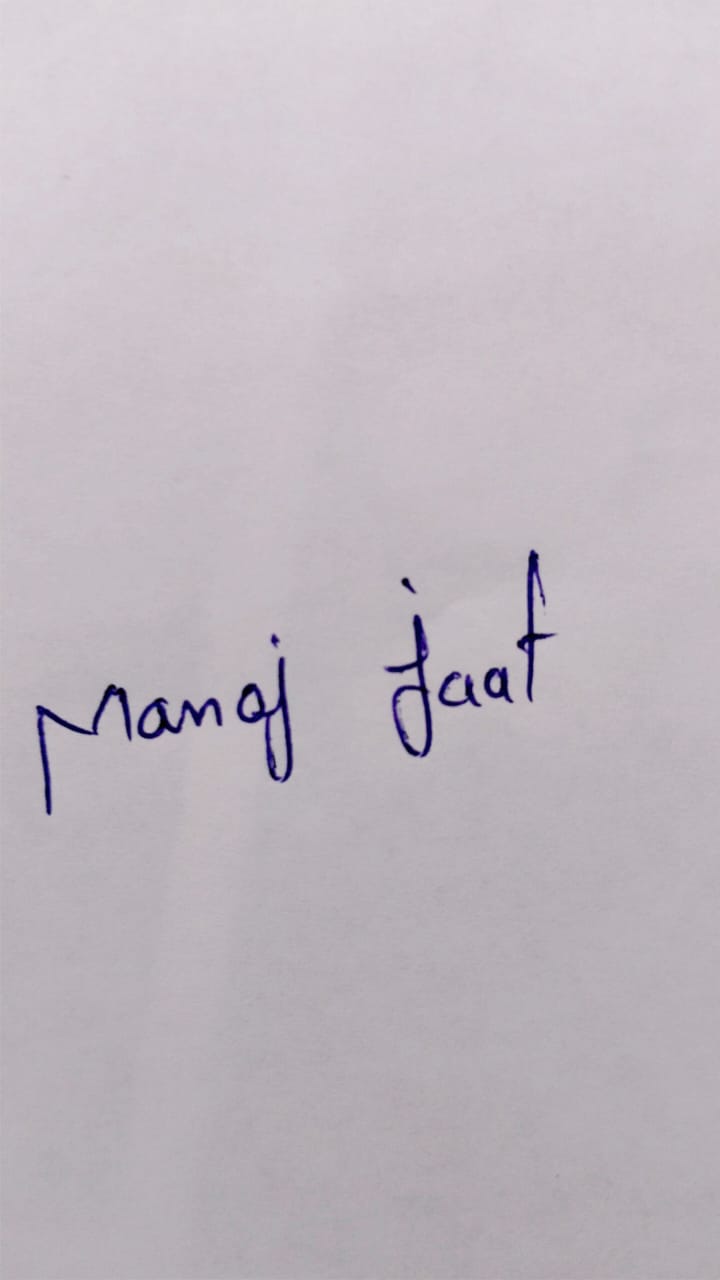 Manoj jaat